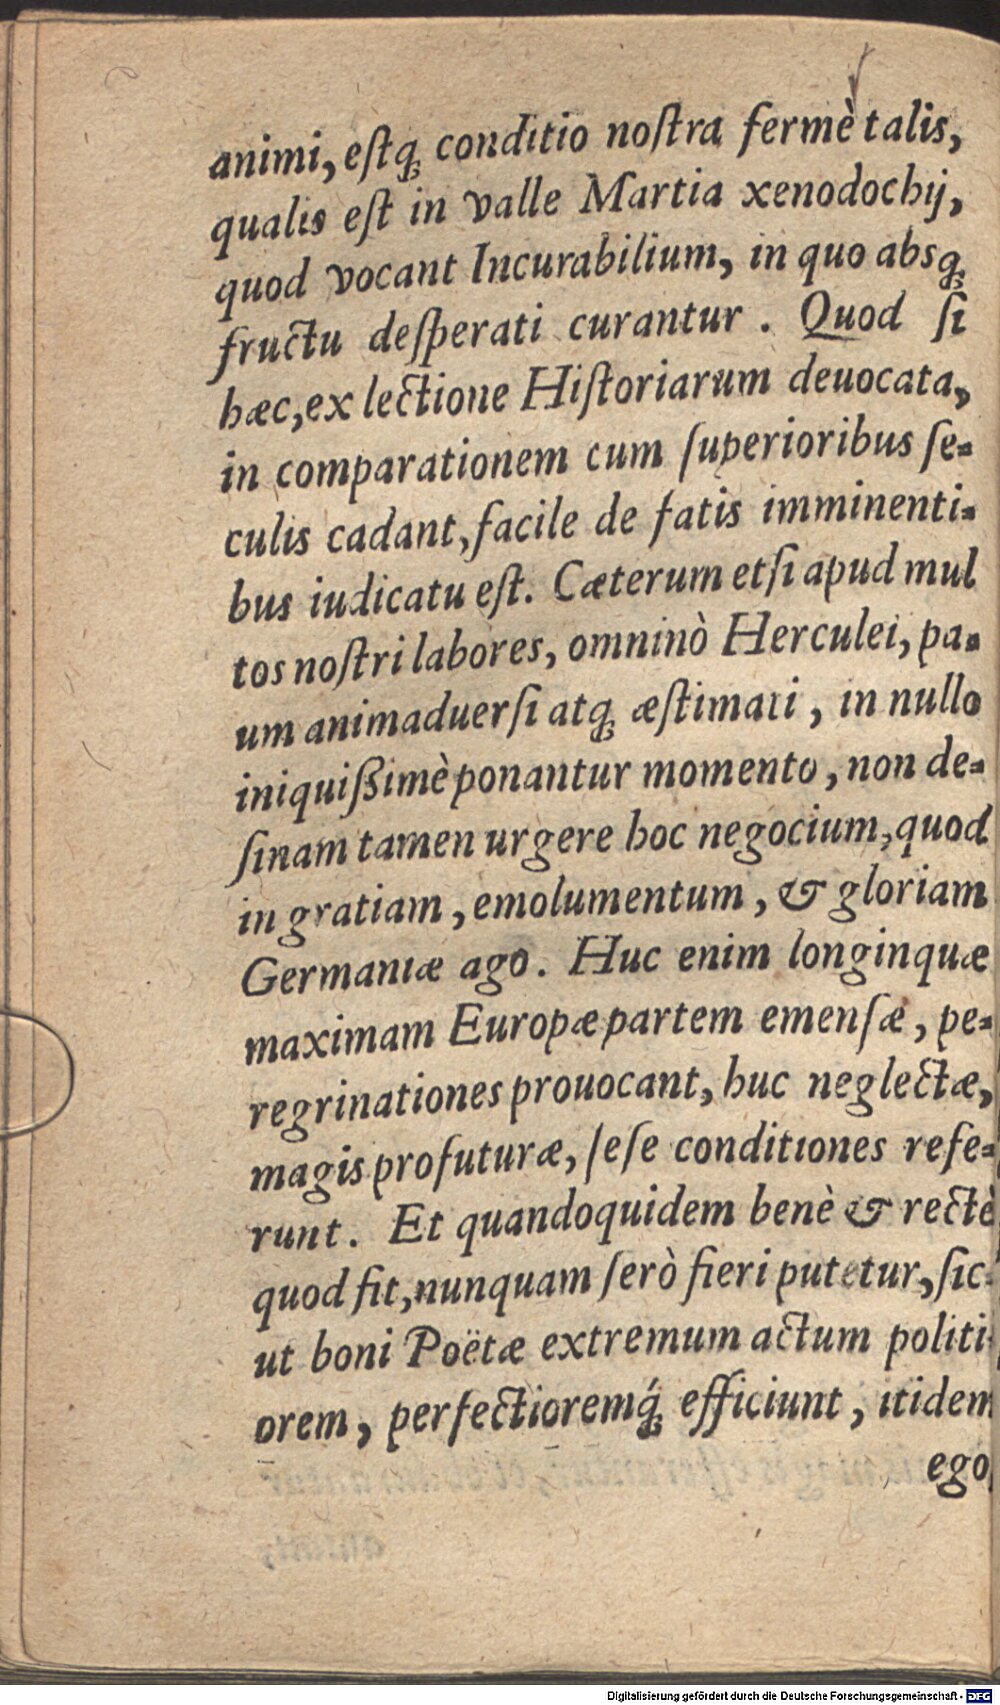 animi, eſtq́; conditio noſtra fermè talis,
qualis eſt in valle Martia xenodochij,
quod vocant Incurabilium, in quo absq;
fructu deſperati curantur. Quod ſi
hæc, ex lectione Hiſtoriarum deuocata,
in comparationem cum ſuperioribus ſe-
culis cadant, facile de fatis imminenti-
bus iudicatu eſt. Cæterum etſi apud mul
tos noſtri labores, omninò Herculei, pa-
um animaduerſi atq; æſtimati, in nullo
iniquiſſimè ponantur momento, non de-
ſinam tamen urgere hoc negocium, quod
in gratiam, emolumentum, & gloriam
Germaniæ ago. Huc enim longinquæ
maximam Europæ partem emenſæ, pe-
regrinationes prouocant, huc neglectæ,
magis profuturæ, ſeſe conditiones refe-
runt. Et quandoquidem benè & rectè
quod fit, nunquam ſerò fieri putetur, ſic-
ut boni Poëtæ extremum actum politi-
orem, perfectioremq́; efficiunt, itidem
ego
Digitalisierung gefördert durch die Deutsche Forschungsgemeinschaft - DFG